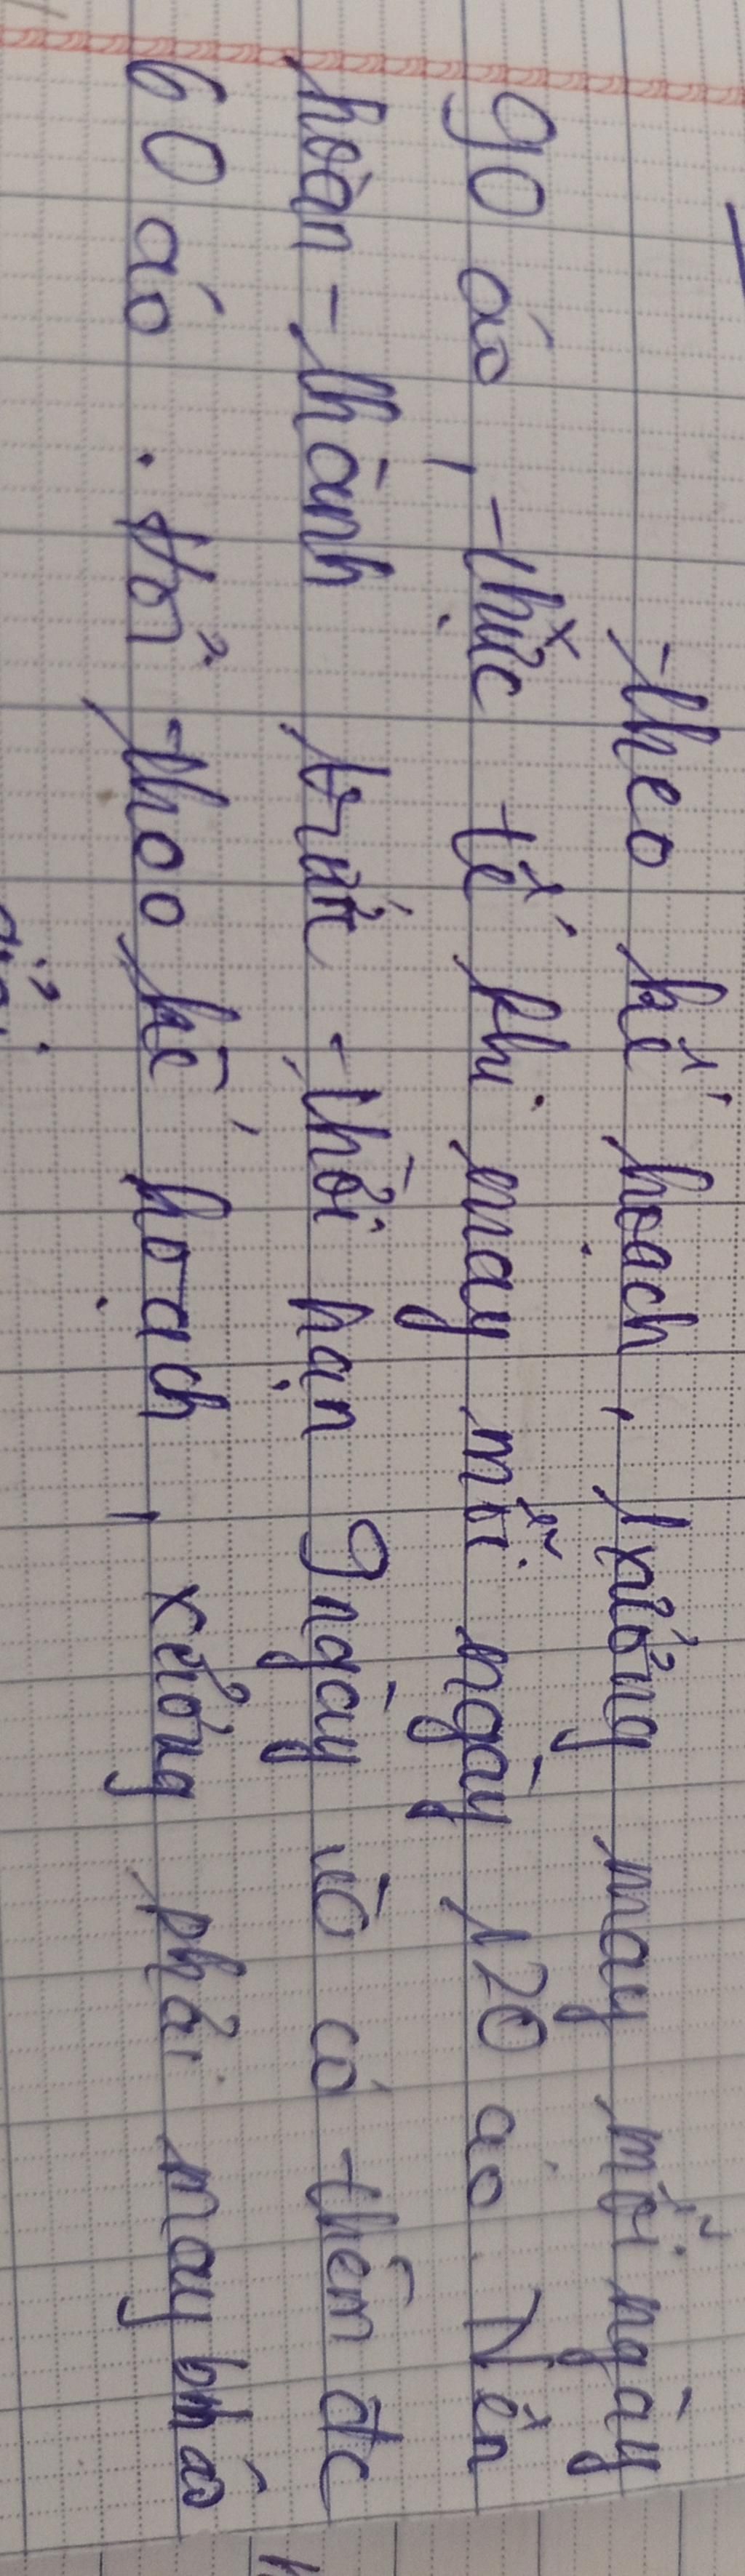 theo kế hoạch, 1 xưởng may mỗi ngày
90 áo, thực tế khi may mỗi ngày 120 áo. Nên
hoàn thành trước thời hạn 9 ngày và có thêm đc
60 áo. Hỏi theo kế hoạch, xưởng phải may bn áo